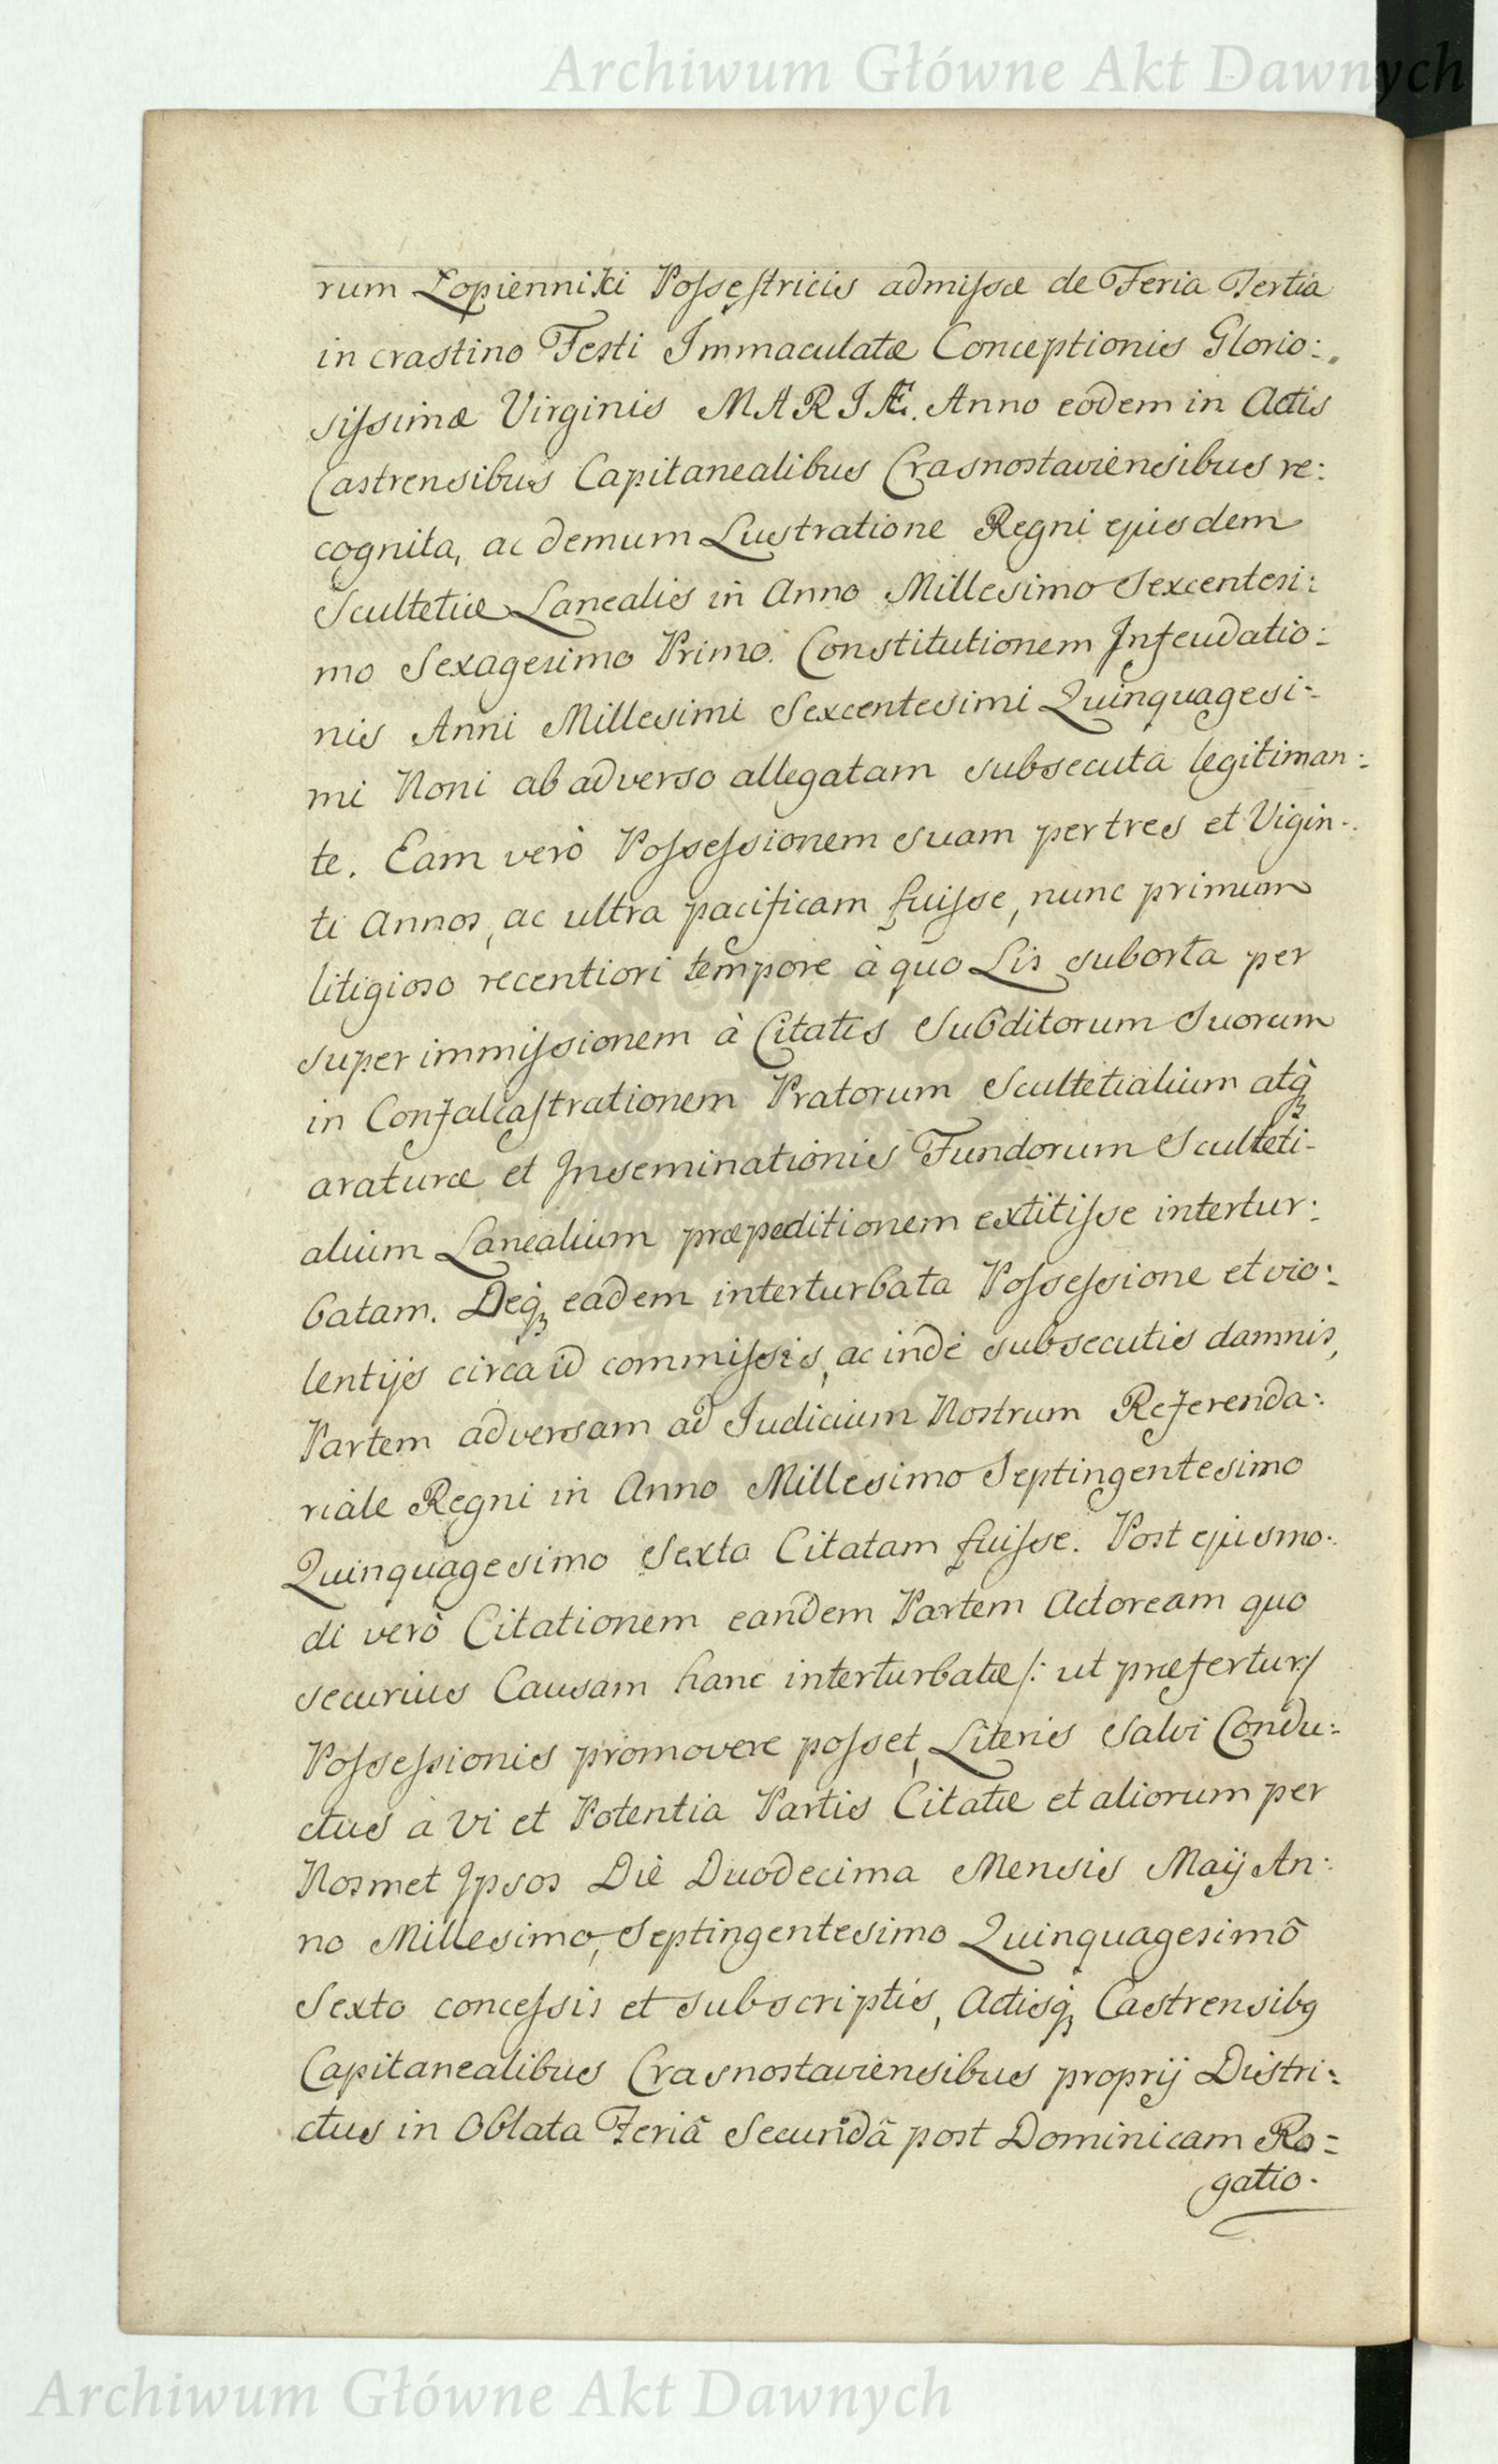 Archiwum Główne Akt Dawnych
rum Łopienniki Possestricis admissæ de Feria Tertia
in crastino Festi Immaculatæ Conceptionis Glorio:
sissimæ Virginis MARIÆ. Anno eodem in Actis
Castrensibus Capitanealibus Crasnostaviensibus re:
cognita, ac demum Lustratione Regni ejusdem
Scultetiæ Lanealis in Anno Millesimo Sexcentesi:
mo Sexagesimo Primo. Constitutionem Infeudatio:
nis Anni Millesimi Sexcentesimi Quinquagesi:
mi Noni ab adverso allegatam subsecuta legitiman:
te. Eam verò Possessionem suam per tres et Vigin:
ti Annos, ac ultra pacificam fuisse, nunc primum
litigioso recentiori tempore à quo Lis suborta per
super immissionem à Citatis Subditorum Suorum
in Confalcastrationem Pratorum Scultetialium atq̃
araturæ et Inseminationis Fundorum Sculteti-
alium Lanealium præpeditionem extitisse intertur:
batam. Deq; eadem interturbata Possessione et vio:
lentijs circa id commissis, ac indè subsecutis damnis,
Partem adversam ad Judicium Nostrum Referenda:
riale Regni in Anno Millesimo Septingentesimo
Quinquagesimo Sexto Citatam fuisse. Post ejusmo:
di verò Citationem eandem Partem Actoream quo
securius Causam hanc interturbatæ /: ut præfertur :/
Possessionis promovere posset, Literis Salvi Condu:
ctus à Vi et Potentia Partis Citatæ et aliorum per
Nosmet Ipsos Die Duodecima Mensis Maij An:
no Millesimo, Septingentesimo Quinquagesimō
Sexto concessis et subscriptis, Actisq; Castrensibg
Capitanealibus Crasnostaviensibus proprij Distri:
ctus in Oblata Feriâ Secundâ post Dominicam Ro=
gatio-
Archiwum Główne Akt Dawnych